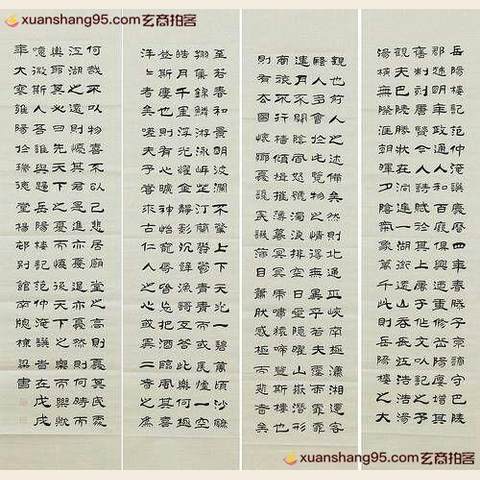 xuanshang95.com玄商拍客
岳陽樓記范仲淹譔慶曆四年春滕子京謫守巴陵
郡越明年政通人和百廢具興乃重修岳陽樓增其
舊制刻唐賢今人詩賦于其上屬予作文以記之予
觀夫巴陵勝狀在洞庭一湖銜遠山吞長江浩浩湯
湯橫無際涯朝暉夕陰氣象萬千此則岳陽樓之大
觀也前人之述備矣然則北通巫峽南極瀟湘遷客
騷人多會于此覽物之情得無異乎若夫霪雨霏霏
連月不開陰風怒號濁浪排空日星隱曜山岳潛形
商旅不行檣傾楫摧薄暮冥冥虎嘯猿啼登斯樓也
則有去國懷鄉憂讒畏譏滿目蕭然感極而悲者矣
至若春和景明波瀾不驚上下天光一碧萬頃沙鷗
翔集錦鱗游泳岸芷汀蘭郁郁青青而或長煙一空
皓月千里浮光躍金靜影沉璧漁歌互答此樂何極
登斯樓也則有心曠神怡寵辱皆忘把酒臨風其喜
洋洋者矣嗟夫予嘗求古仁人之心或異二者之為
何哉不以物喜不以己悲居廟堂之高則憂其民處
江湖之遠則憂其君是進亦憂退亦憂然則何時而
樂耶其必曰先天下之憂而憂後天下之樂而樂歟
噫微斯人吾誰與歸岳陽樓記范仲淹譔歲在戊戌
年大寒 堂 別館南牕棟梁書
xuanshang95.com玄商拍客